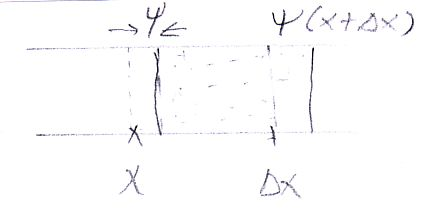 →Ψ← Ψ(x+Δx)
x
X Δx